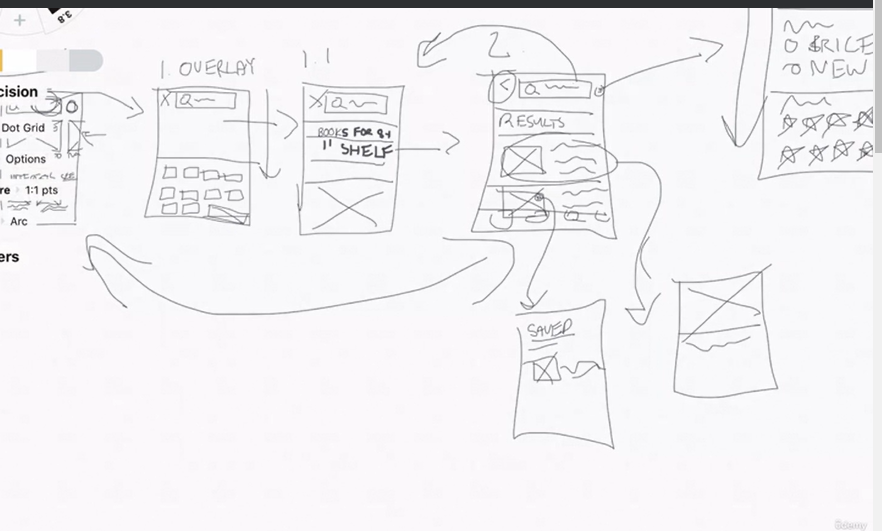 3.8
cision
Dot Grid
Options
re 1:1 pts
Arc
ers
1. OVERLAY
X Q
1.1
X Q
BOOKS FOR 84
11 SHELF
2
< Q
RESULTS
SAVED
O $RICE
O NEW
ûdemy